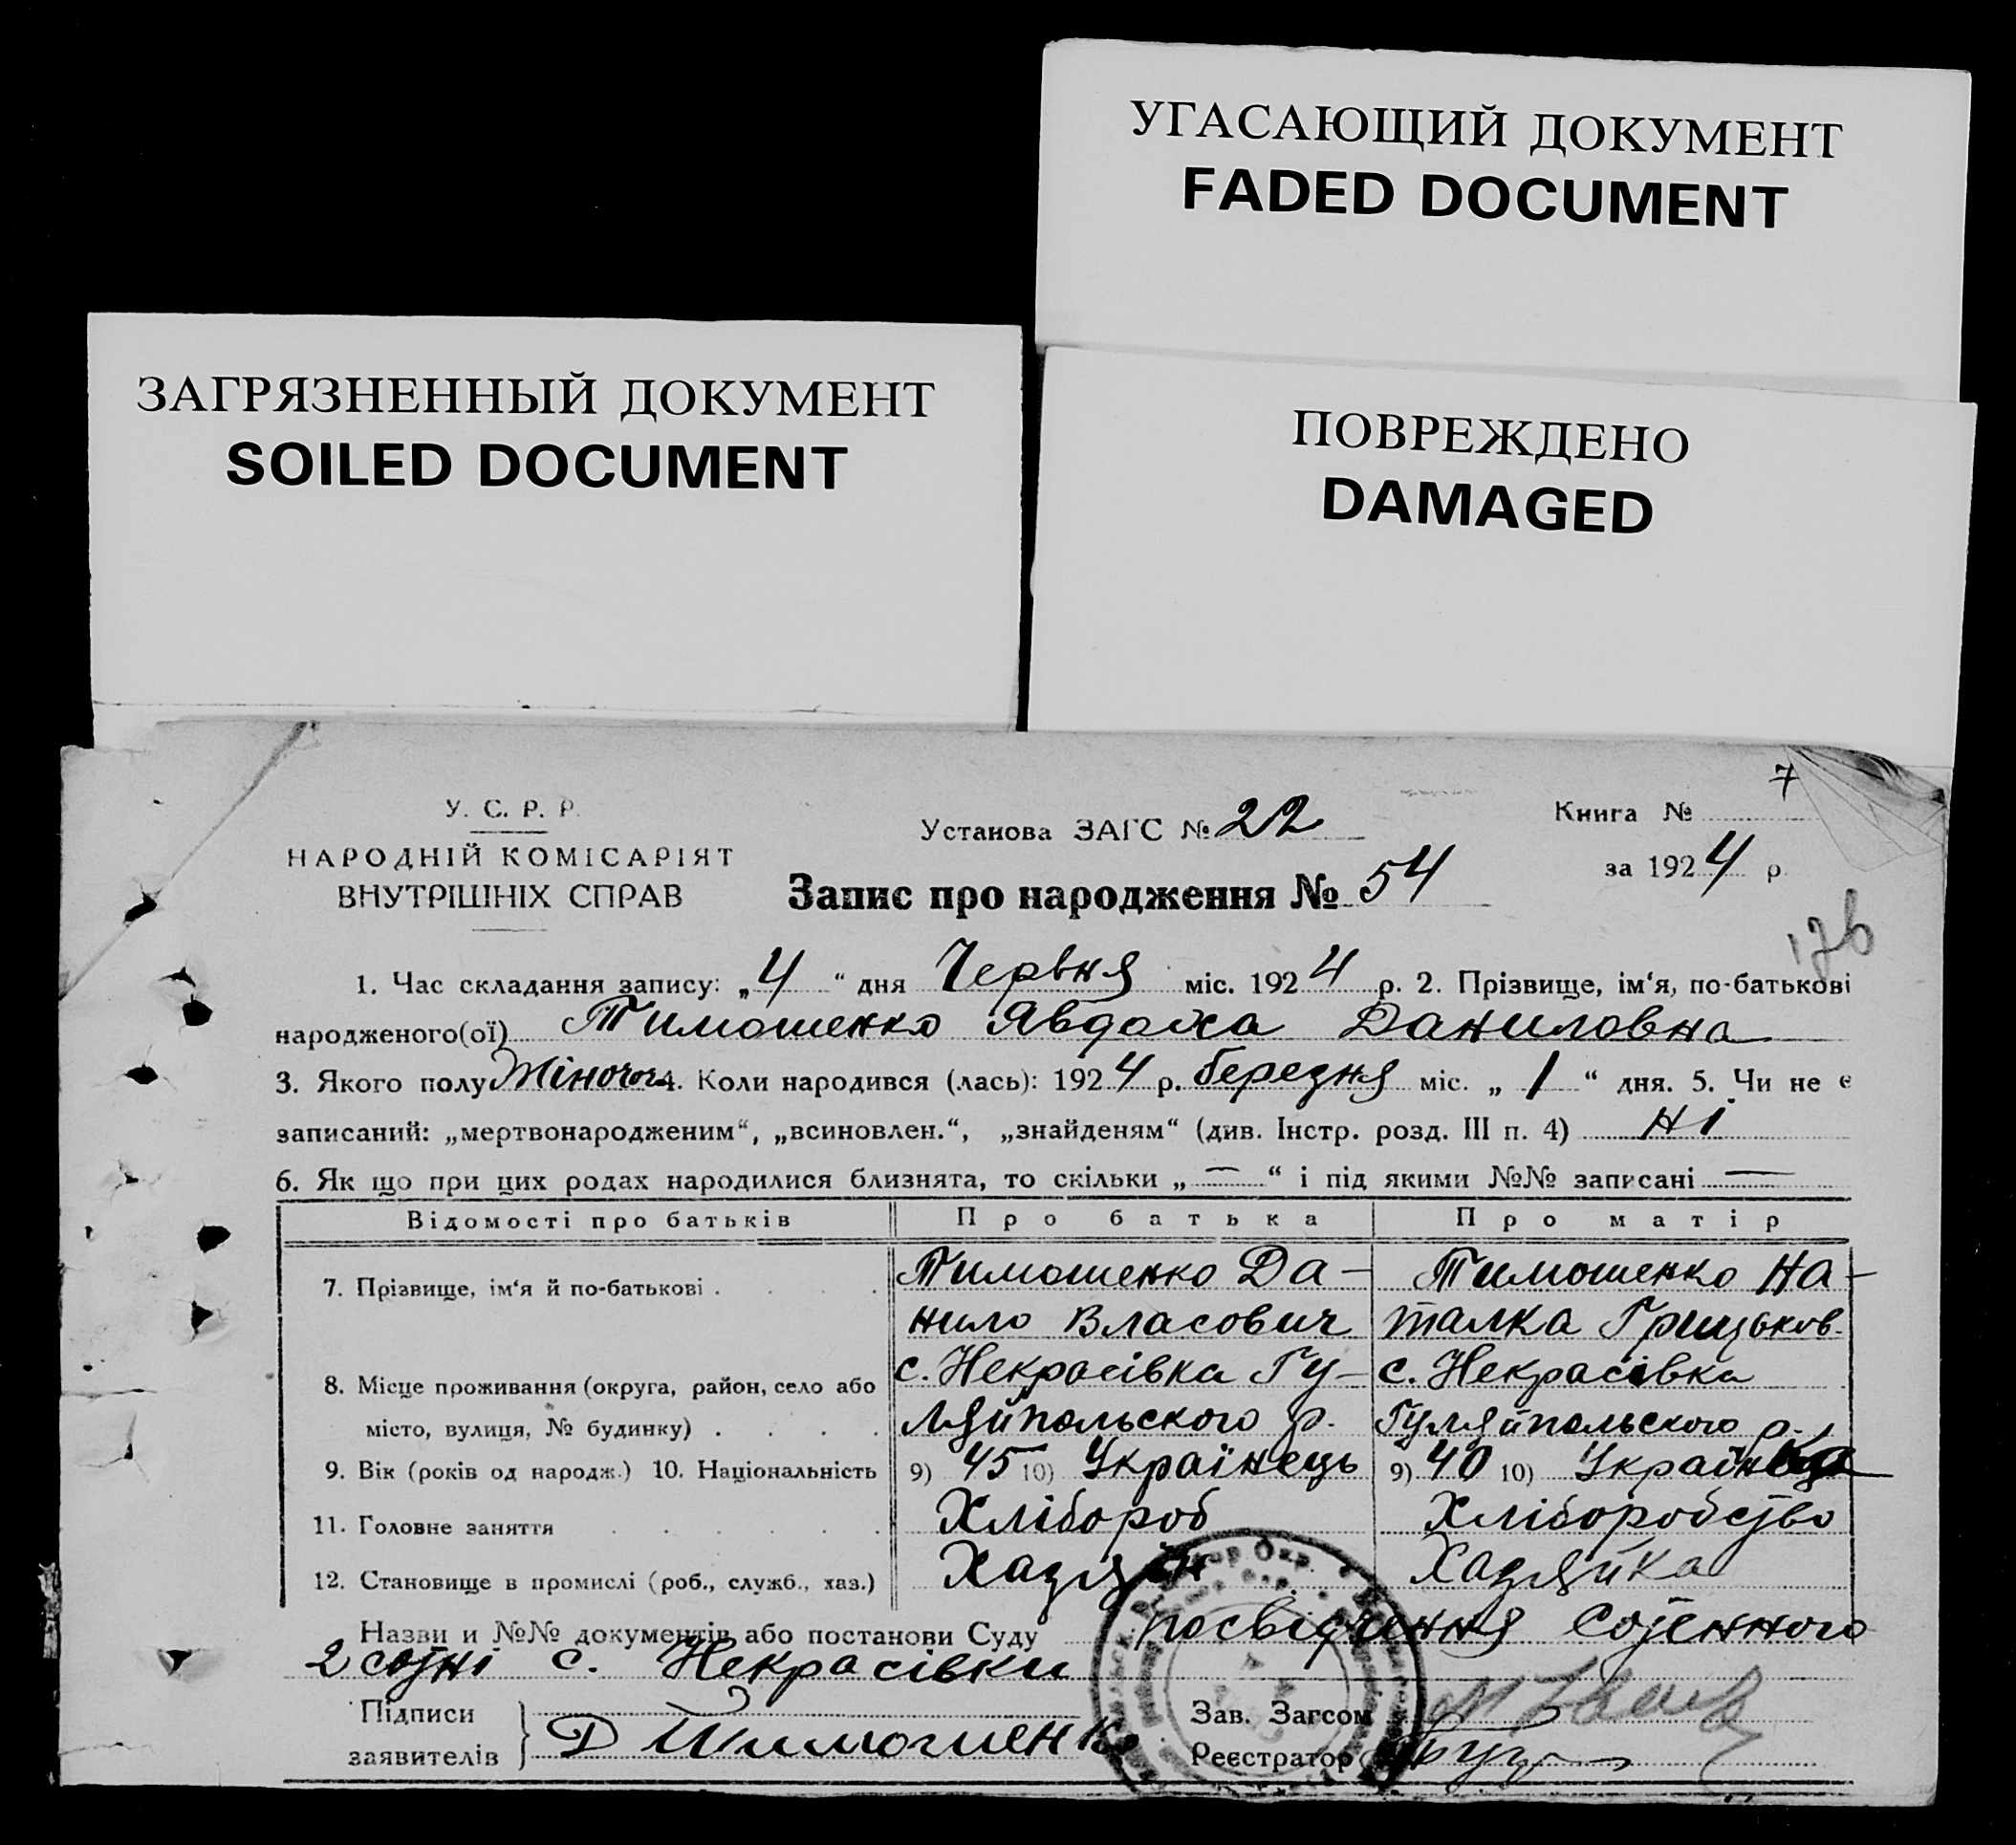 УГАСАЮЩИЙ ДОКУМЕНТ
FADED DOCUMENT
ЗАГРЯЗНЕННЫЙ ДОКУМЕНТ
SOILED DOCUMENT
ПОВРЕЖДЕНО
DAMAGED
7
У. С. Р. Р.
НАРОДНІЙ КОМІСАРІЯТ
ВНУТРІШНІХ СПРАВ
Установа ЗАГС № 22
Запис про народження № 54
Книга №
за 1924 р
176
1. Час складання запису: „4“ дня Червня міс. 1924 р. 2. Прізвище, ім‘я, по-батькові
народженого(ої) Тимошенко Явдоха Даниловна
3. Якого полу Жіночог 4. Коли народився (лась): 1924 р. березня міс. „1“ дня. 5. Чи не є
записаний: „мертвонародженим“, „всиновлен.“, „знайденям“ (див. Інстр. розд. III п. 4) Ні
6. Як що при цих родах народилися близнята, то скільки „—“ і під якими №№ записані —
Відомості про батьків Про батька Про матір
7. Прізвище, ім‘я й по-батькові . . . . Тимошенко Да- Тимошенко На-
нило Власович талка Грицьков.
8. Місце проживання (округа, район, село або с. Некрасівка Гу- с. Некрасівка
місто, вулиця, № будинку) . . . . ляйпольского р. Гуляйпольского р.
9. Вік (років од народж.) 10. Національність 9) 45 10) Українець 9) 40 10) Українка
11. Головне заняття . . . . . . Хлібороб Хліборобство
12. Становище в промислі (роб., служб., хаз.) Хазяін Хазяйка
Назви и №№ документів або постанови Суду посвідчення Сотенного
2 сотні с. Некрасівки
Підписи
заявителів } Д Тимошенко
Зав. Загсом
Реєстратор